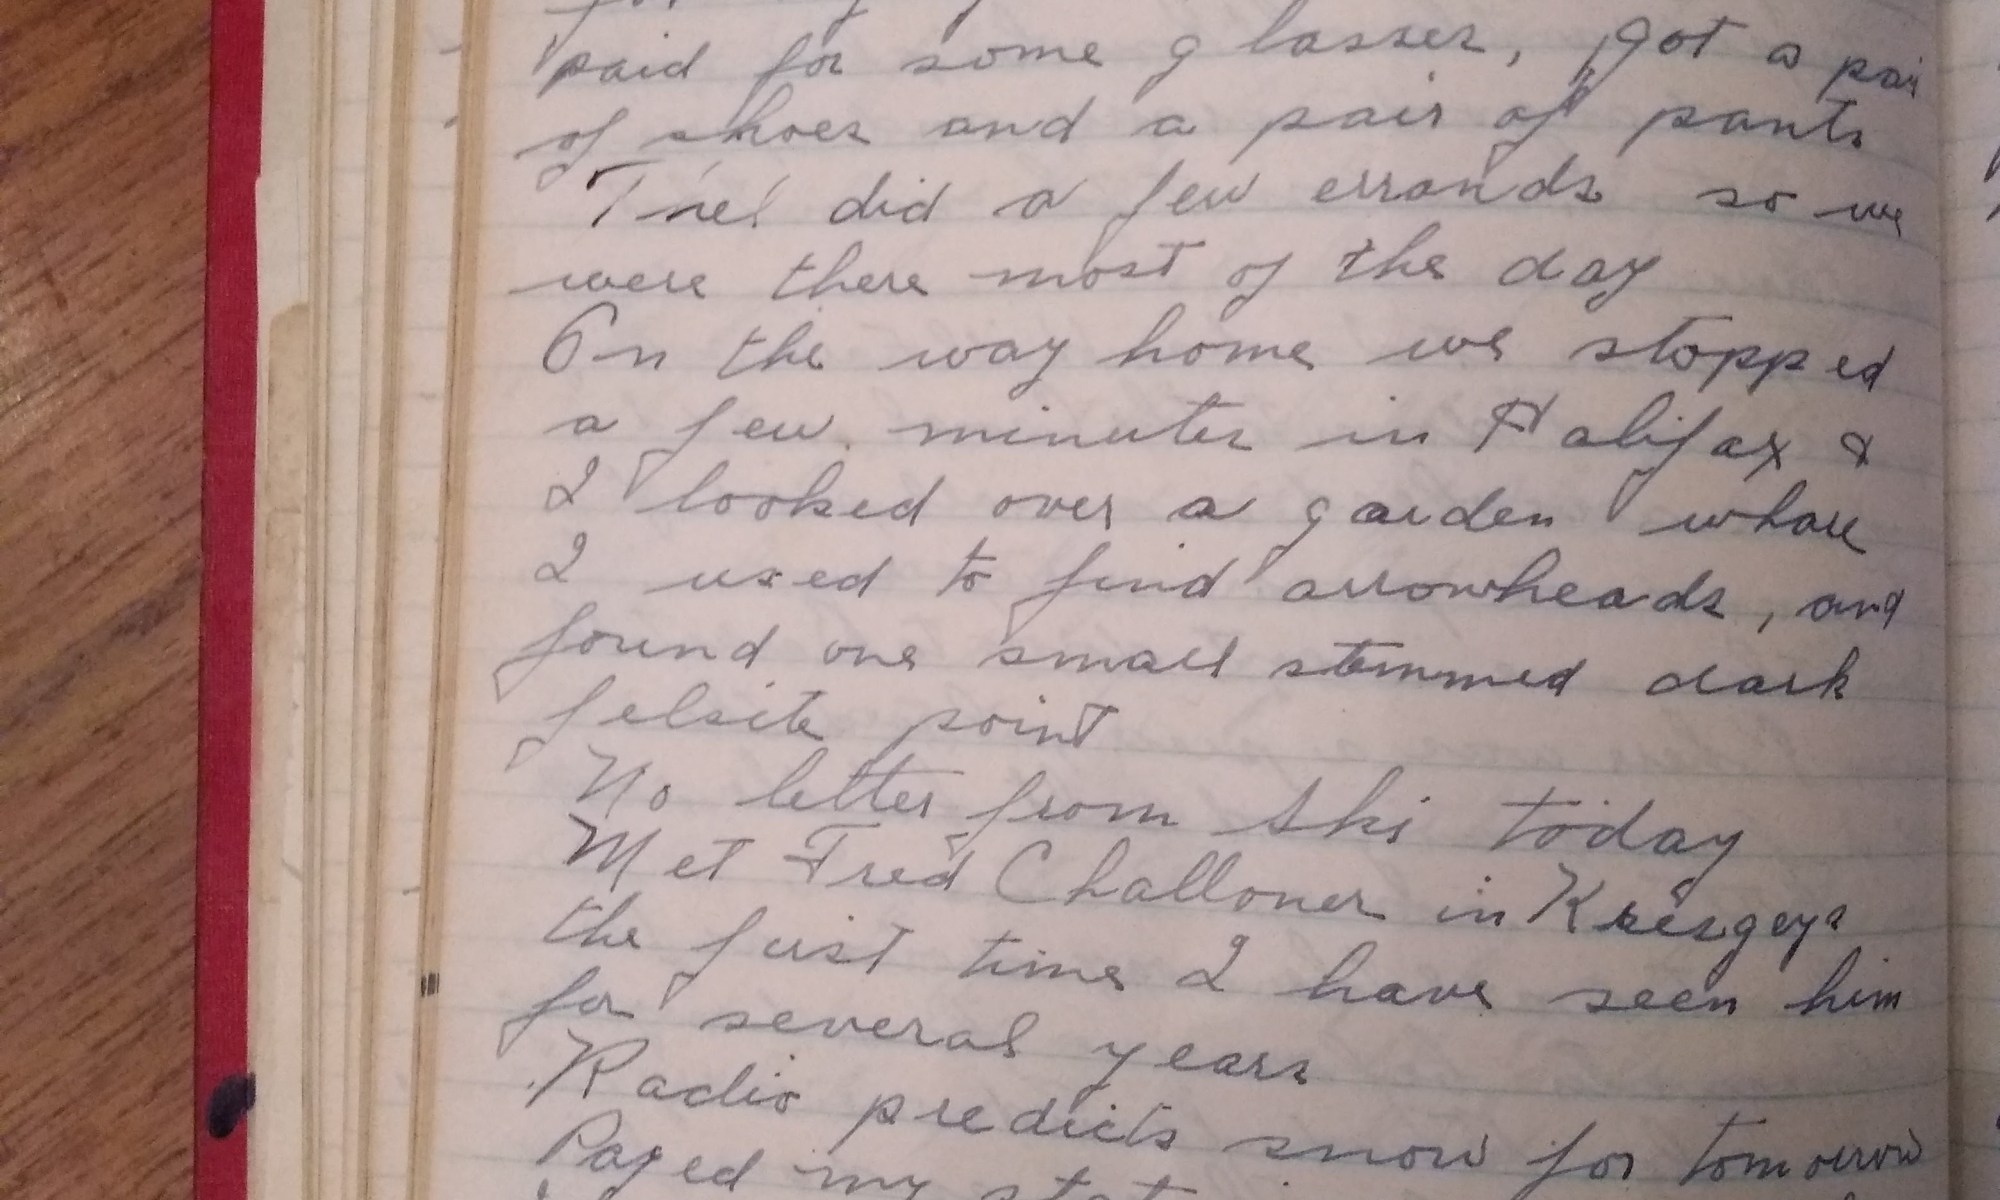 paid for some glasses, got a pair
of shoes and a pair of pants
did a few errands so we
were there most of the day
On the way home we stopped
a few minutes in Halifax &
I looked over a garden whare
I used to find arrowheads, and
found one small stemmed dark
felsite point
No letter from Ski today
Met Fred Challoner in Kresgeys
the first time I have seen him
for several years
Radio predicts snow for tomorrow
my